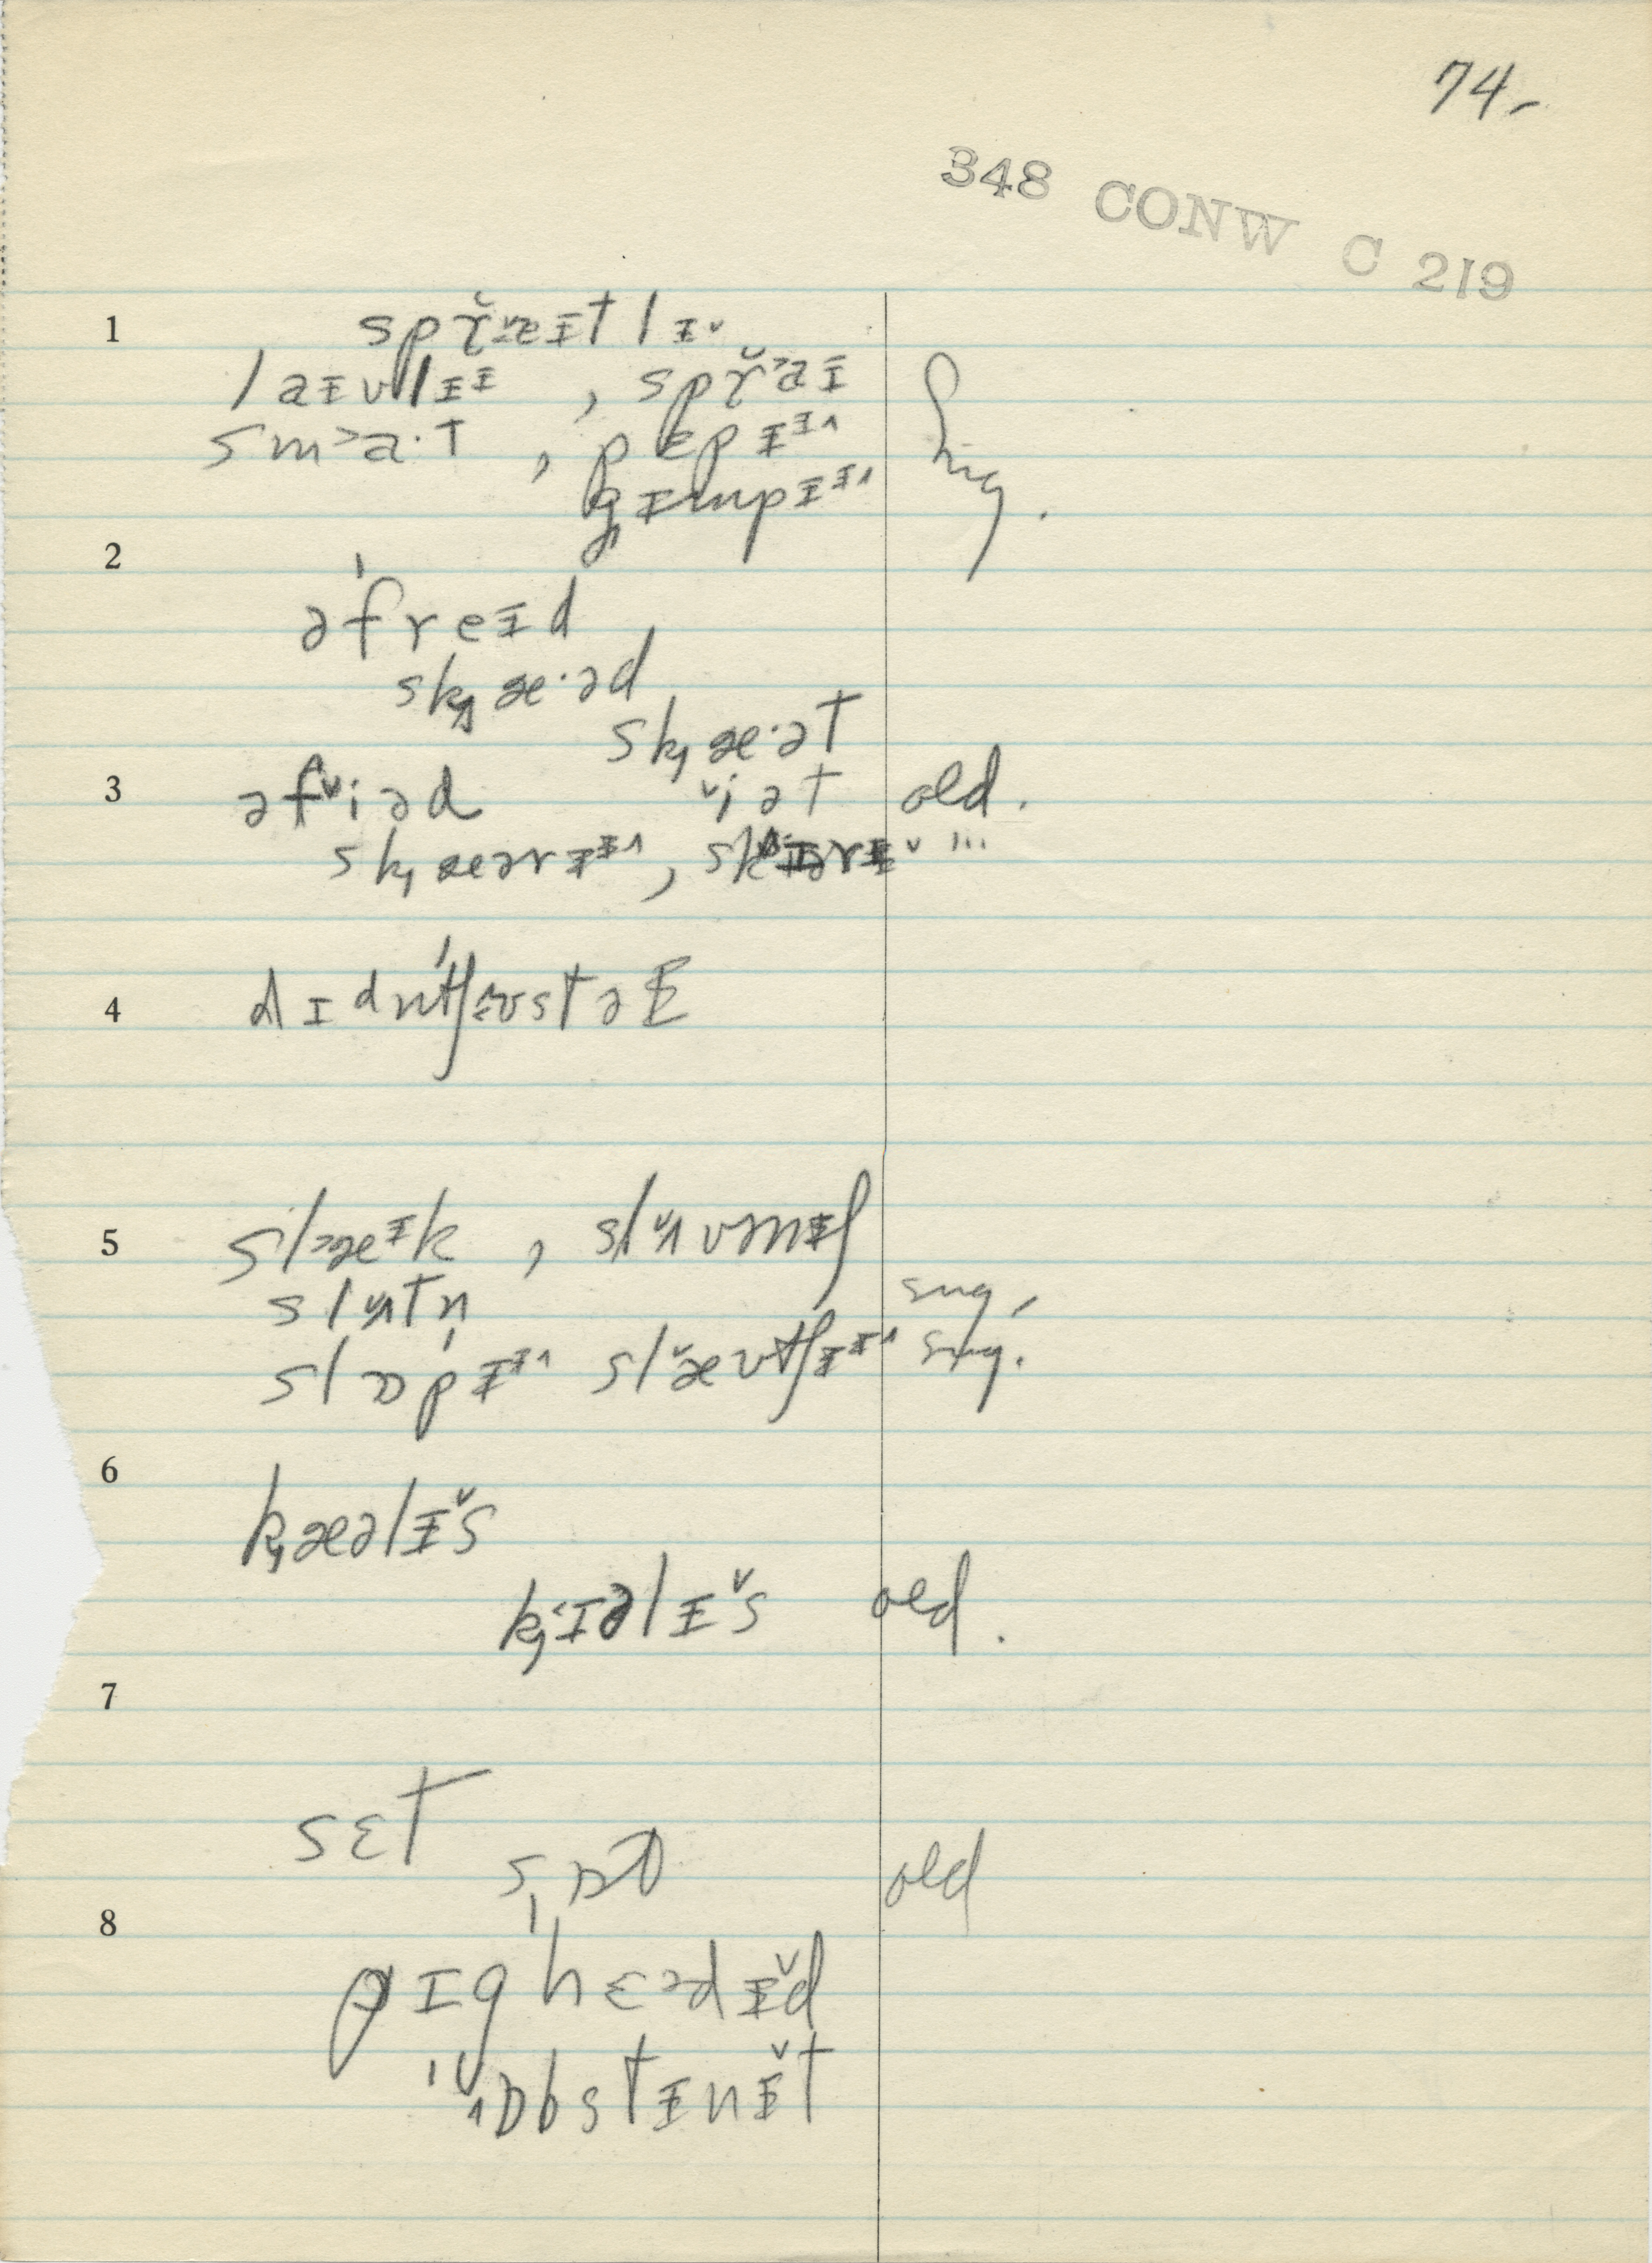 74-
348 CONW C 219
1
spr̆ᵛæɪt lɪᵛ
laɪvlɪɪ , spr̆˃aɪ
sm˃a·t , pɛpɪɪ˄ sug.
gɪmpɪɪ˄
2
əˈfreɪd
sk˱æ·əd
sk˱æ·ət
3 əfᵛiəd ᵛiət old.
sk˱æərɪɪ˄ ,
4 dɪdnˈtʃ˄ʊstəɛ
5 sl˃æɪk , slʌvmɪʃ
slʌtn̩ sug,
slɒpɪɪ˄ slæʊtʃɪɪ˄ sug.
6
k˱æəlɪ̆s
k˱ɪəlɪ̆s old.
7
sɛt
sɒt old
8
ˈpɪg hɛədɪ̆d
ˈɒbstɪnɪ̆t